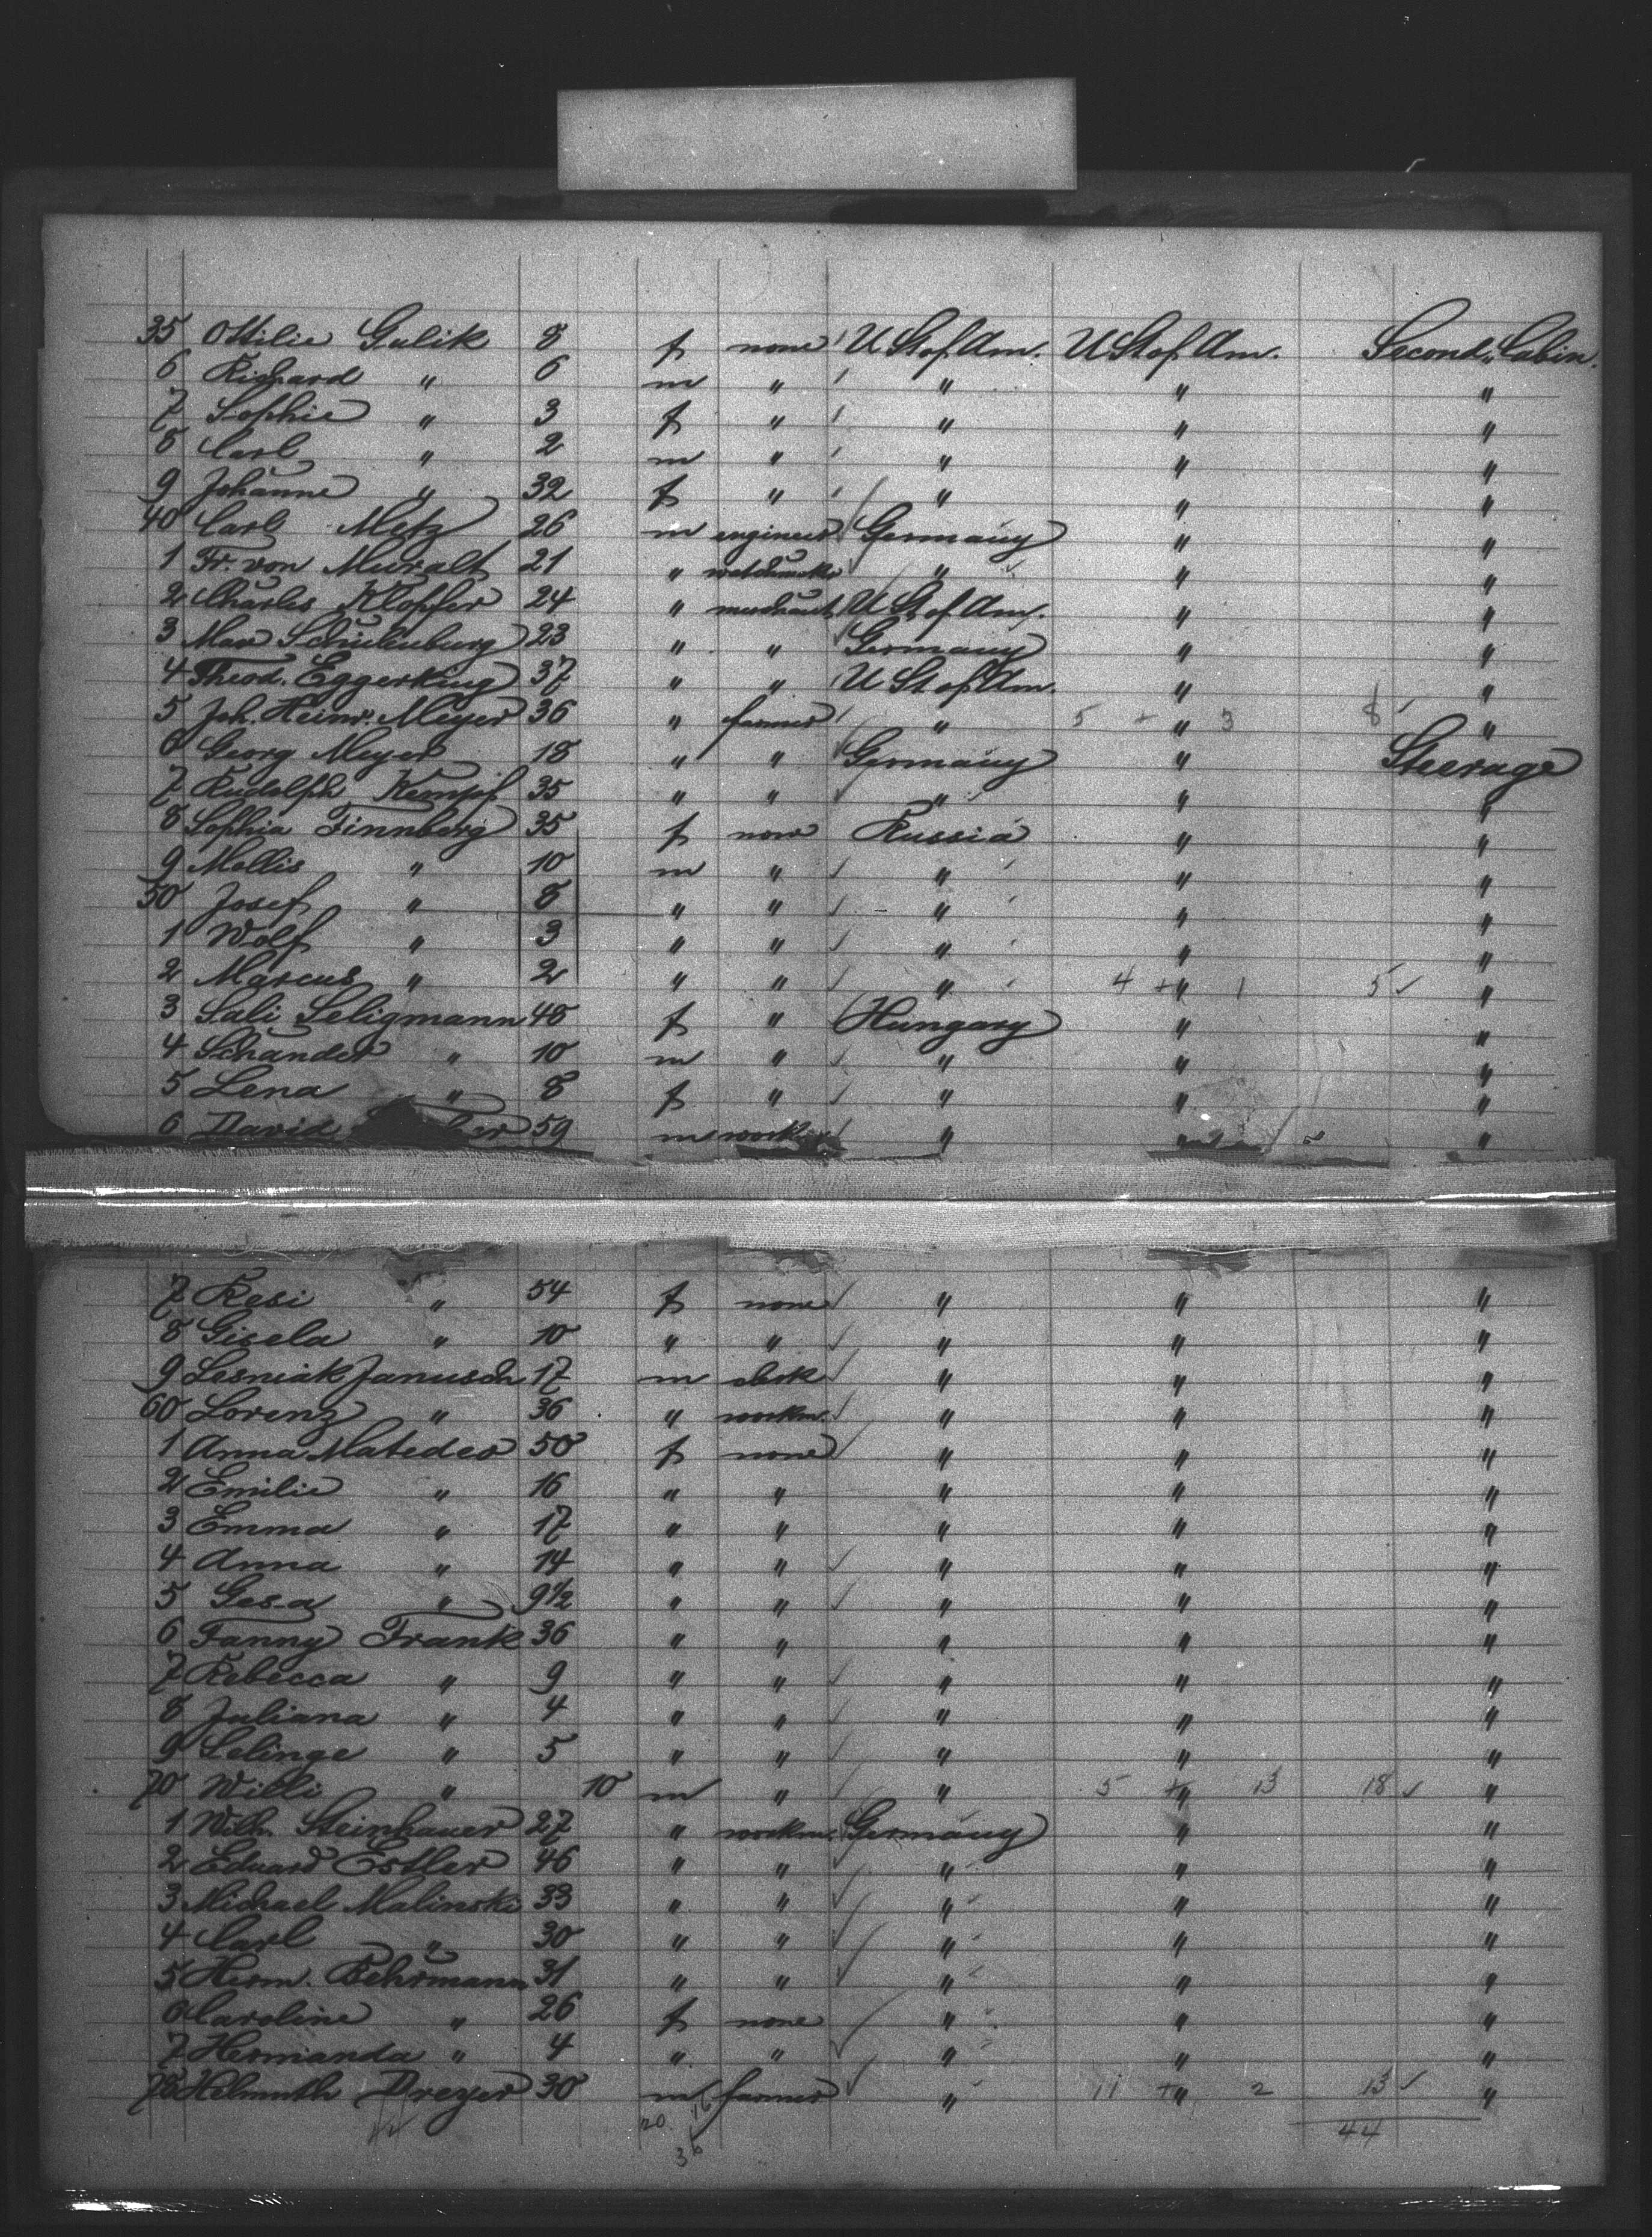 35 Ottilie Gulik 8 f none U St of Am. U St of Am. Second Cabin.
6 Richard " 6 m " " " "
7 Sophie " 3 f " " " "
8 Carl " 2 m " " " "
9 Johanne " 32 f " " " "
40 Carl Metz 26 m engineer Germany " "
1 Fr. von Muralt 21 " " " "
2 Charles Klopfer 24 " merchant U St of Am. " "
3 Max Schulenburg 23 " " Germany " "
4 Theod. Eggerking 37 " " U St of Am. " "
5 Joh. Heinr. Meyer 36 " farmer " 5 + " 3 8 "
6 Georg Meyer 18 " " Germany " Steerage
7 Rudolph Kempf 35 " " " " "
8 Sophia Finnberg 35 f none Russia " "
9 Mollis " 10 m " " " "
50 Josef " 8 " " " " "
1 Wolf " 3 " " " " "
2 Marcus " 2 " " " 4 + " 1 5 "
3 Sali Seligmann 48 f " Hungary " "
4 Schandor " 10 m " " " "
5 Lena " 8 f " " " "
6 David 59 m " " "
7 Resi " 54 f none " " "
8 Gisela " 10 " " " " "
9 Lesniak Janusch 17 m clerk " " "
60 Lorenz " 36 " workm. " " "
1 Anna Matedeo 50 f none " " "
2 Emilie " 16 " " " " "
3 Emma " 17 " " " " "
4 Anna " 14 " " " " "
5 Gesa " 9 1/2 " " " " "
6 Fanny Frank 36 " " " " "
7 Rebecca " 9 " " " " "
8 Juliana " 4 " " " " "
9 Selinge " 5 " " " " "
70 Willi " 10 m " " 5 + " 13 18 "
1 Wilh. Steinhauer 27 " workm. Germany " "
2 Eduard Estler 46 " " " " "
3 Michael Malinski 33 " " " " "
4 Carl " 30 " " " " "
5 Herm. Behrmann 31 " " " " "
6 Caroline " 26 f none " " "
7 Hermanda " 4 " " " " "
78 Helmuth Dreyer 30 m farmer " 11 + " 2 13 "
20 16 44
36